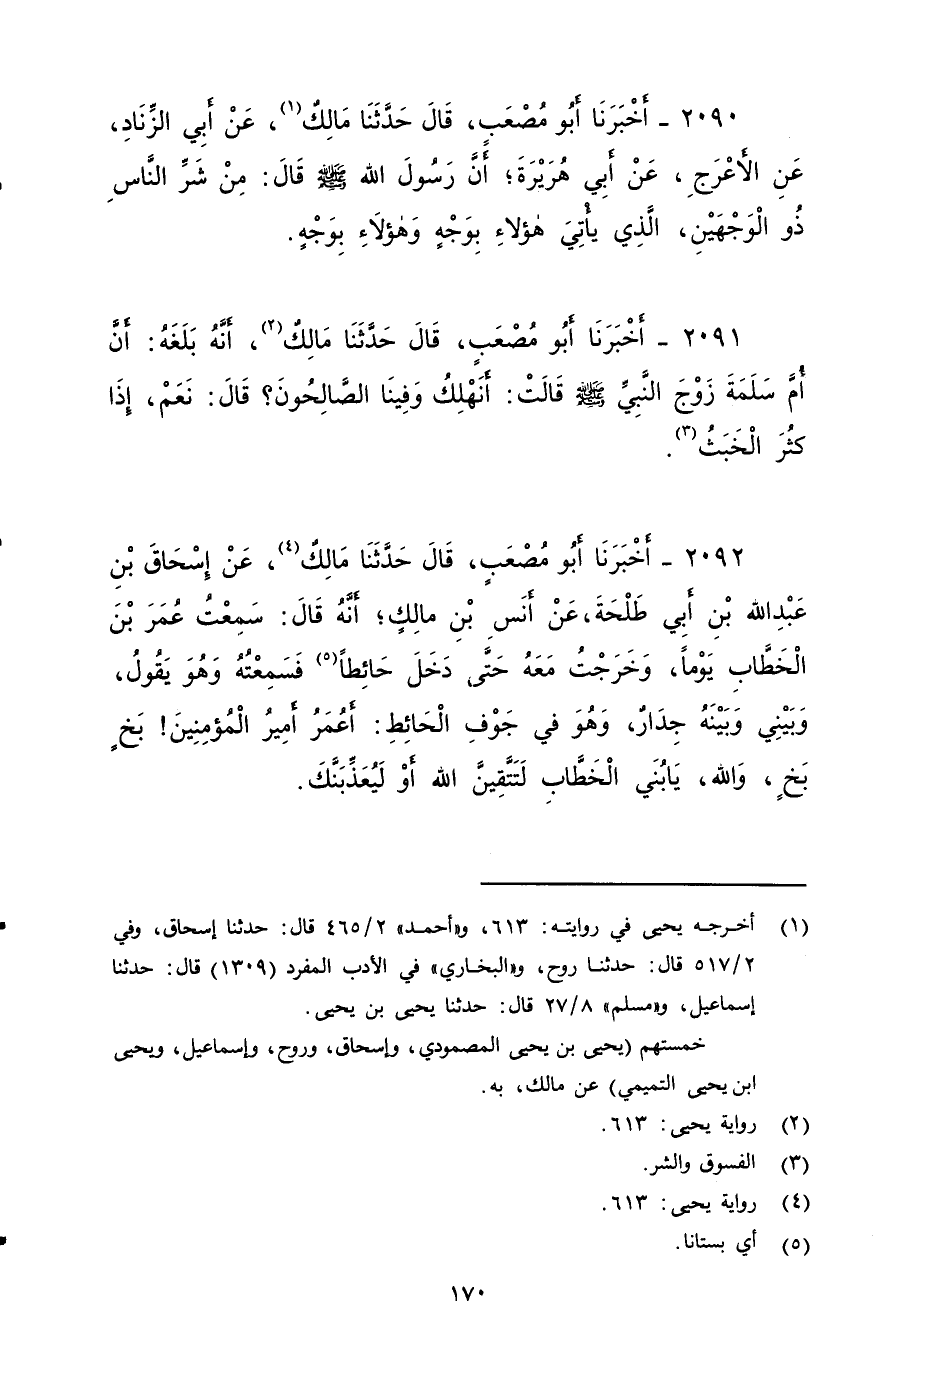 ٢٠٩٠ ـ أَخْبَرَنَا أَبُو مُصْعَبٍ، قَالَ حَدَّثَنَا مَالِكٌ(١)، عَنْ أَبِي الزِّنَادِ،
عَنِ الأَعْرَجِ، عَنْ أَبِي هُرَيْرَةَ؛ أَنَّ رَسُولَ الله ﷺ قَالَ: مِنْ شَرِّ النَّاسِ
ذُو الْوَجْهَيْنِ، الَّذِي يأْتِيَ هٰؤلاءِ بِوَجْهٍ وَهٰؤلَاءِ بِوَجْهٍ.
٢٠٩١ ـ أَخْبَرَنَا أَبُو مُصْعَبٍ، قَالَ حَدَّثَنَا مَالِكٌ(٢)، أَنَّهُ بَلَغَهُ: أَنَّ
أُمَّ سَلَمَةَ زَوْجَ النَّبِيِّ ﷺ قَالَتْ: أَنَهْلِكُ وَفِينَا الصَّالِحُونَ؟ قَالَ: نَعَمْ، إِذَا
كثُرَ الْخَبَثُ(٣).
٢٠٩٢ ـ أَخْبَرَنَا أَبُو مُصْعَبٍ، قَالَ حَدَّثَنَا مَالِكٌ(٤)، عَنْ إِسْحَاقَ بْنِ
عَبْدِالله بْنِ أَبي طَلْحَةَ،عَنْ أَنَسِ بْنِ مالِكٍ؛ أَنَّهُ قَالَ: سَمِعْتُ عُمَرَ بْنَ
الْخَطَّابِ يَوْماً، وَخَرَجْتُ مَعَهُ حَتَّى دَخَلَ حَائِطاً(٥) فَسَمِعْتُهُ وَهُوَ يَقُولُ،
وَبَيْنِي وَبَيْنَهُ جِدَارٌ، وَهُوَ في جَوْفِ الْحَائِطِ: أَعُمَرُ أَمِيرُ الْمُؤمِنِينَ! بَخٍ
بَخٍ، وَالله، يَابُنَي الْخَطَّابِ لَتَتَّقِينَّ الله أَوْ لَيُعَذِّبَنَّكَ.
(١) أخرجه يحيى في روايته: ٦١٣، و«أحمد» ٤٦٥/٢ قال: حدثنا إسحاق، وفي
٥١٧/٢ قال: حدثنا روح، و«البخاري» في الأدب المفرد (١٣٠٩) قال: حدثنا
إسماعيل، و«مسلم» ٢٧/٨ قال: حدثنا يحيى بن يحيى.
خمستهم (يحيى بن يحيى المصمودي، وإسحاق، وروح، وإسماعيل، ويحيى
ابن يحيى التميمي) عن مالك، به.
(٢) رواية يحيى: ٦١٣.
(٣) الفسوق والشر.
(٤) رواية يحيى: ٦١٣.
(٥) أي بستانا.
١٧٠